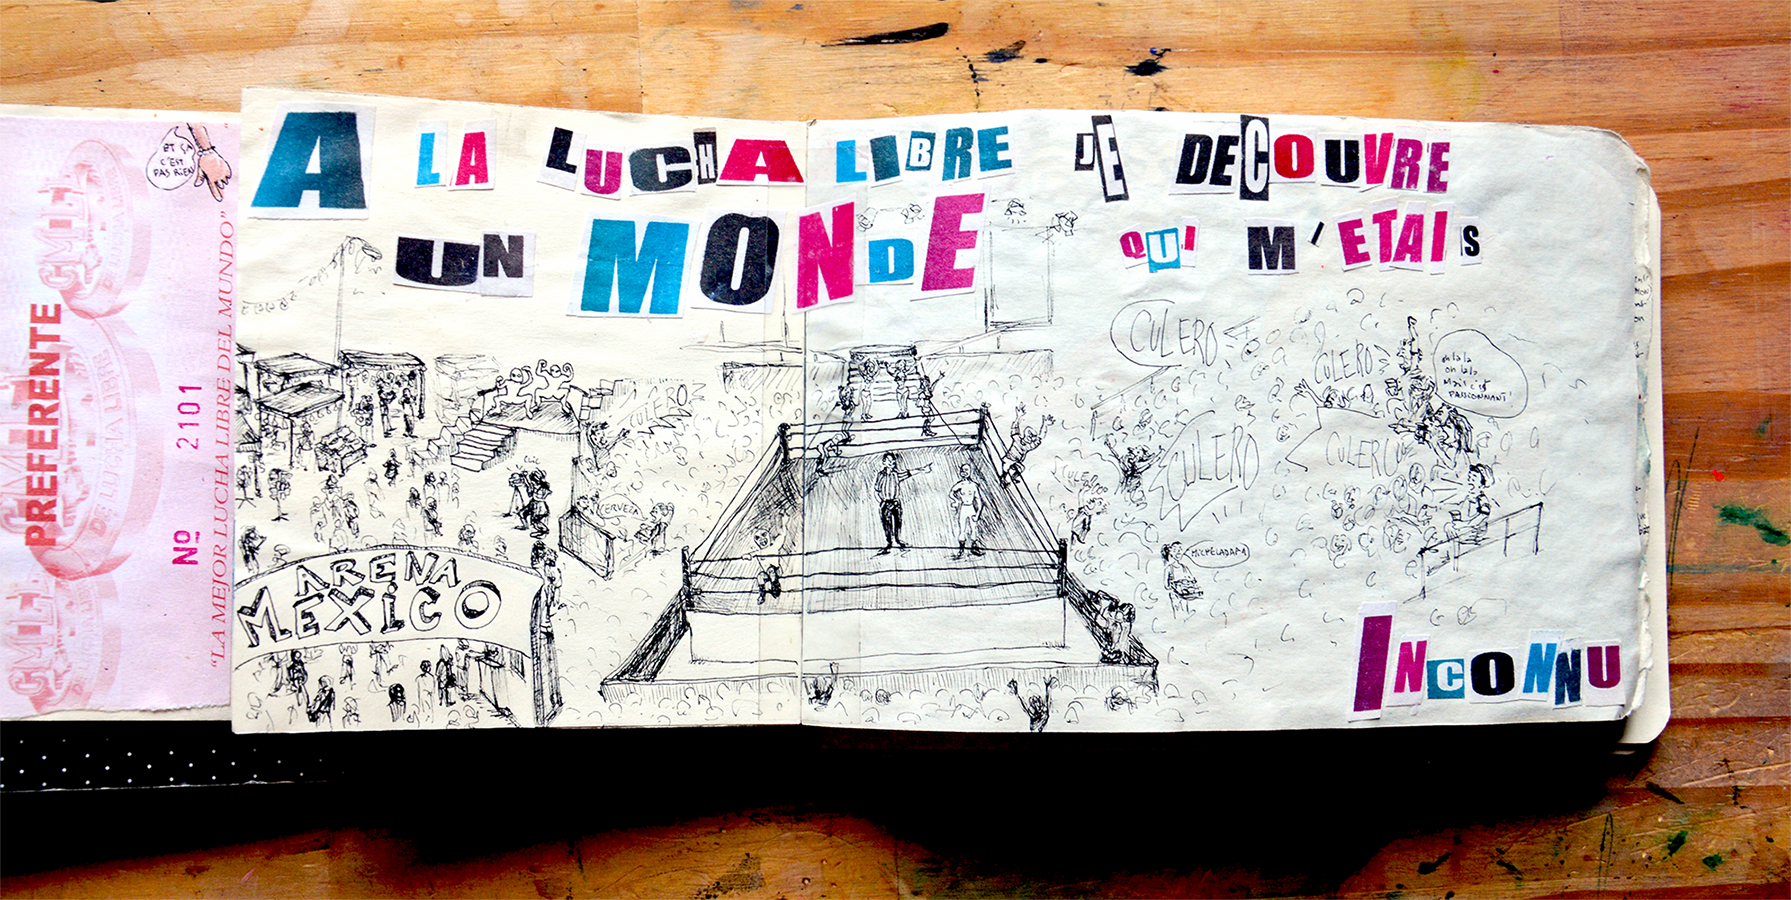 A LA LUCHA LIBRE JE DECOUVRE
UN MONDE QUI M'ETAIS
INCONNU
ET ÇA
C'EST
PAS RIEN
PREFERENTE
Nº 2101
"LA MEJOR LUCHA LIBRE DEL MUNDO"
CMLL
CMLL
DE LUCHA LIBRE
ARENA
MEXICO
CULERO
CERVEZA
CULERO
CULERO
CULERO
CULERO
CULERO
MICHELADA
oh la la
oh la la
Mais c'est
PASSIONNANT!